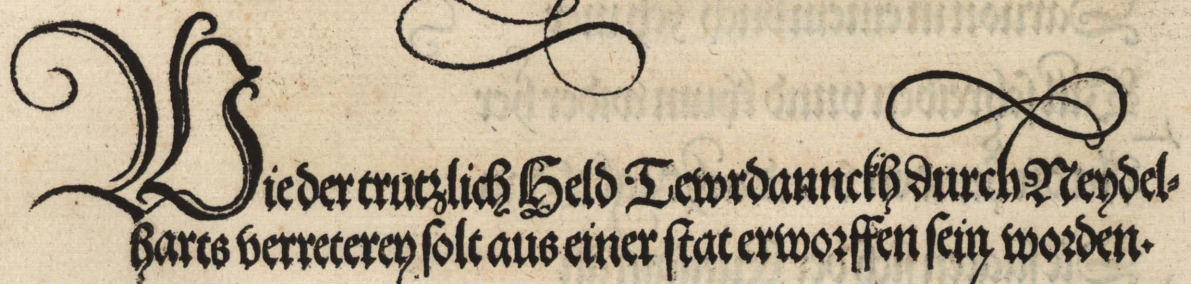 Wie der trutzlich Held Tewrdannckh durch Neydel-
harts verreterey solt aus einer stat erworffen sein worden.